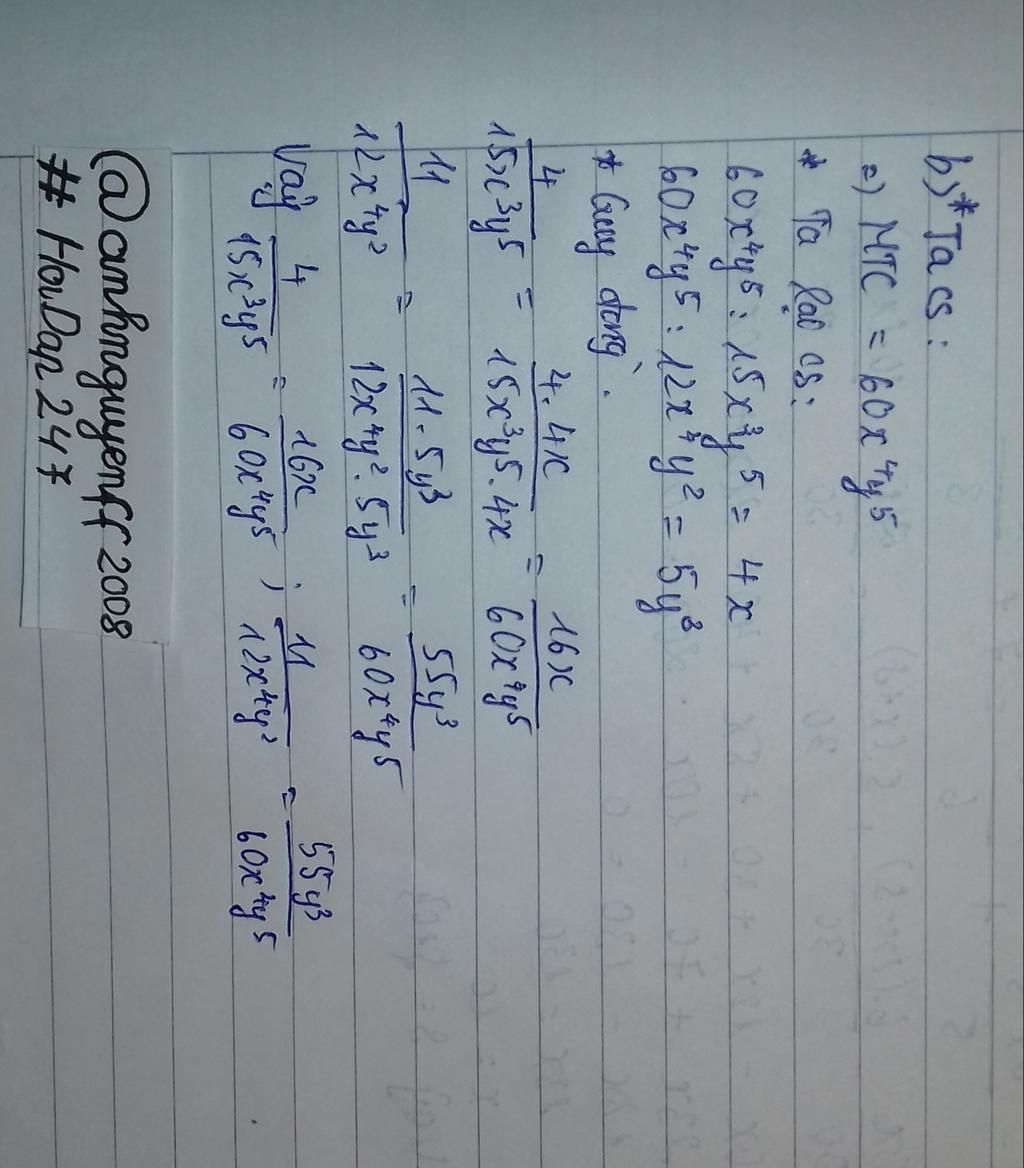 b)* Ta có:
=) MTC = 60x⁴y⁵
* Ta lại có:
60x⁴y⁵ : 15x³y⁵ = 4x
60x⁴y⁵ : 12x⁴y² = 5y³
* Quy đồng.
4/15x³y⁵ = 4.4x/15x³y⁵.4x = 16x/60x⁴y⁵
11/12x⁴y² = 11.5y³/12x⁴y².5y³ = 55y³/60x⁴y⁵
Vậy 4/15x³y⁵ = 16x/60x⁴y⁵ ; 11/12x⁴y² = 55y³/60x⁴y⁵
@anhnguyenff2008
# HoiDap247